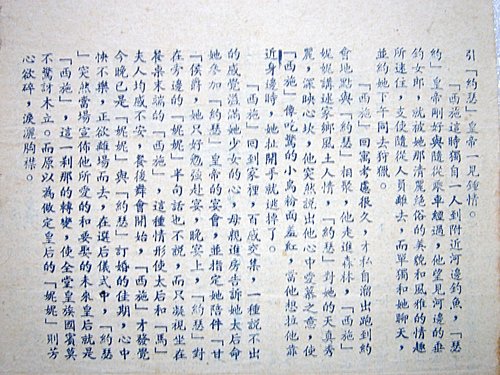 引「約瑟」皇帝一見鍾情。
「西施」這時獨自一人到附近河邊釣魚，「瑟
約」皇帝剛好與隨從乘車經過，他望見河邊的垂
釣女郎，就被她那清麗絕俗的美貌和風雅的情趣
所迷住，支使隨從人員離去，而單獨和她聊天，
並約她下午同去狩獵。
「西施」回寓考慮很久，才私自溜出跑到約
會地點與「約瑟」相聚，他走進森林，「西施」
娓娓講述家鄉風土人情，「約瑟」對她的天真秀
麗，深映心坎，他突然說出他心中愛慕之意，使
「西施」像吃驚的小鳥粉面羞紅，當他想拉他靠
近身邊時，她扯開手就逃掉了。
「西施」回到家裡，百感交集，一種說不出
的感覺溢滿她少女的心，母親進房告訴她太后命
她參加「約瑟」皇帝的宴會，並指定她陪伴「甘
」侯爵，她只好勉強赴宴，晚宴上，「約瑟」對
在旁邊的「妮妮」半句話也不說，而只凝視坐在
餐桌末端的「西施」，這種情形使太后和「馬」
夫人均感不安，餐後舞會開始，「西施」才發覺
今晚已是「妮妮」與「約瑟」訂婚的佳期，心中
快快不樂，正欲離場而去，在選后儀式中，「約瑟
」突然當場宣佈他所愛的和要娶的未來皇后就是
「西施」，這一刹那的轉變，使全堂皇族國賓莫
不驚訝木立。而原以為做定皇后的「妮妮」則芳
心欲碎，淚灑胸襟。